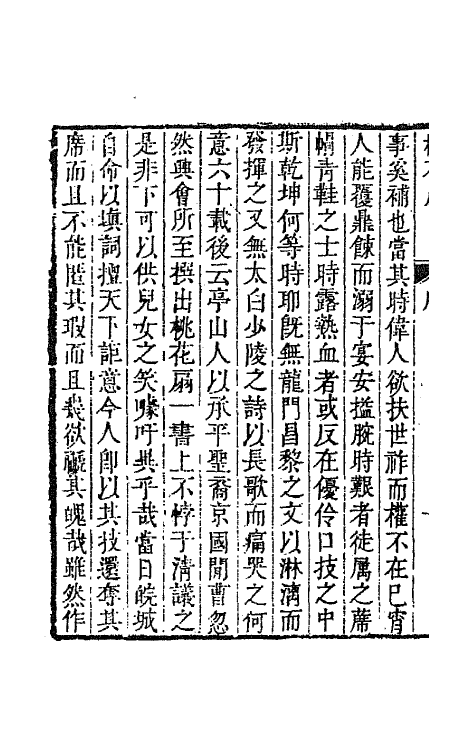 事奚補也當其時偉人欲扶世祚而權不在已宵
人能覆鼎餗而溺于宴安搤腕時艱者徒属之蓆
帽青鞋之士時露熱血者或反在優伶口技之中
斯乾坤何等時耶旣無龍門昌黎之文以淋漓而
發揮之又無太白少陵之詩以長歌而痛哭之何
意六十載後云亭山人以承平聖裔京國閒曹忽
然興會所至撰出桃花扇一書上不悖于清議之
是非下可以供兒女之笑噱吁異乎哉當日皖城
自命以塡詞擅天下詎意今人卽以其技還奪其
席而且不能匿其瑕而且幾欲褫其魄哉雖然作